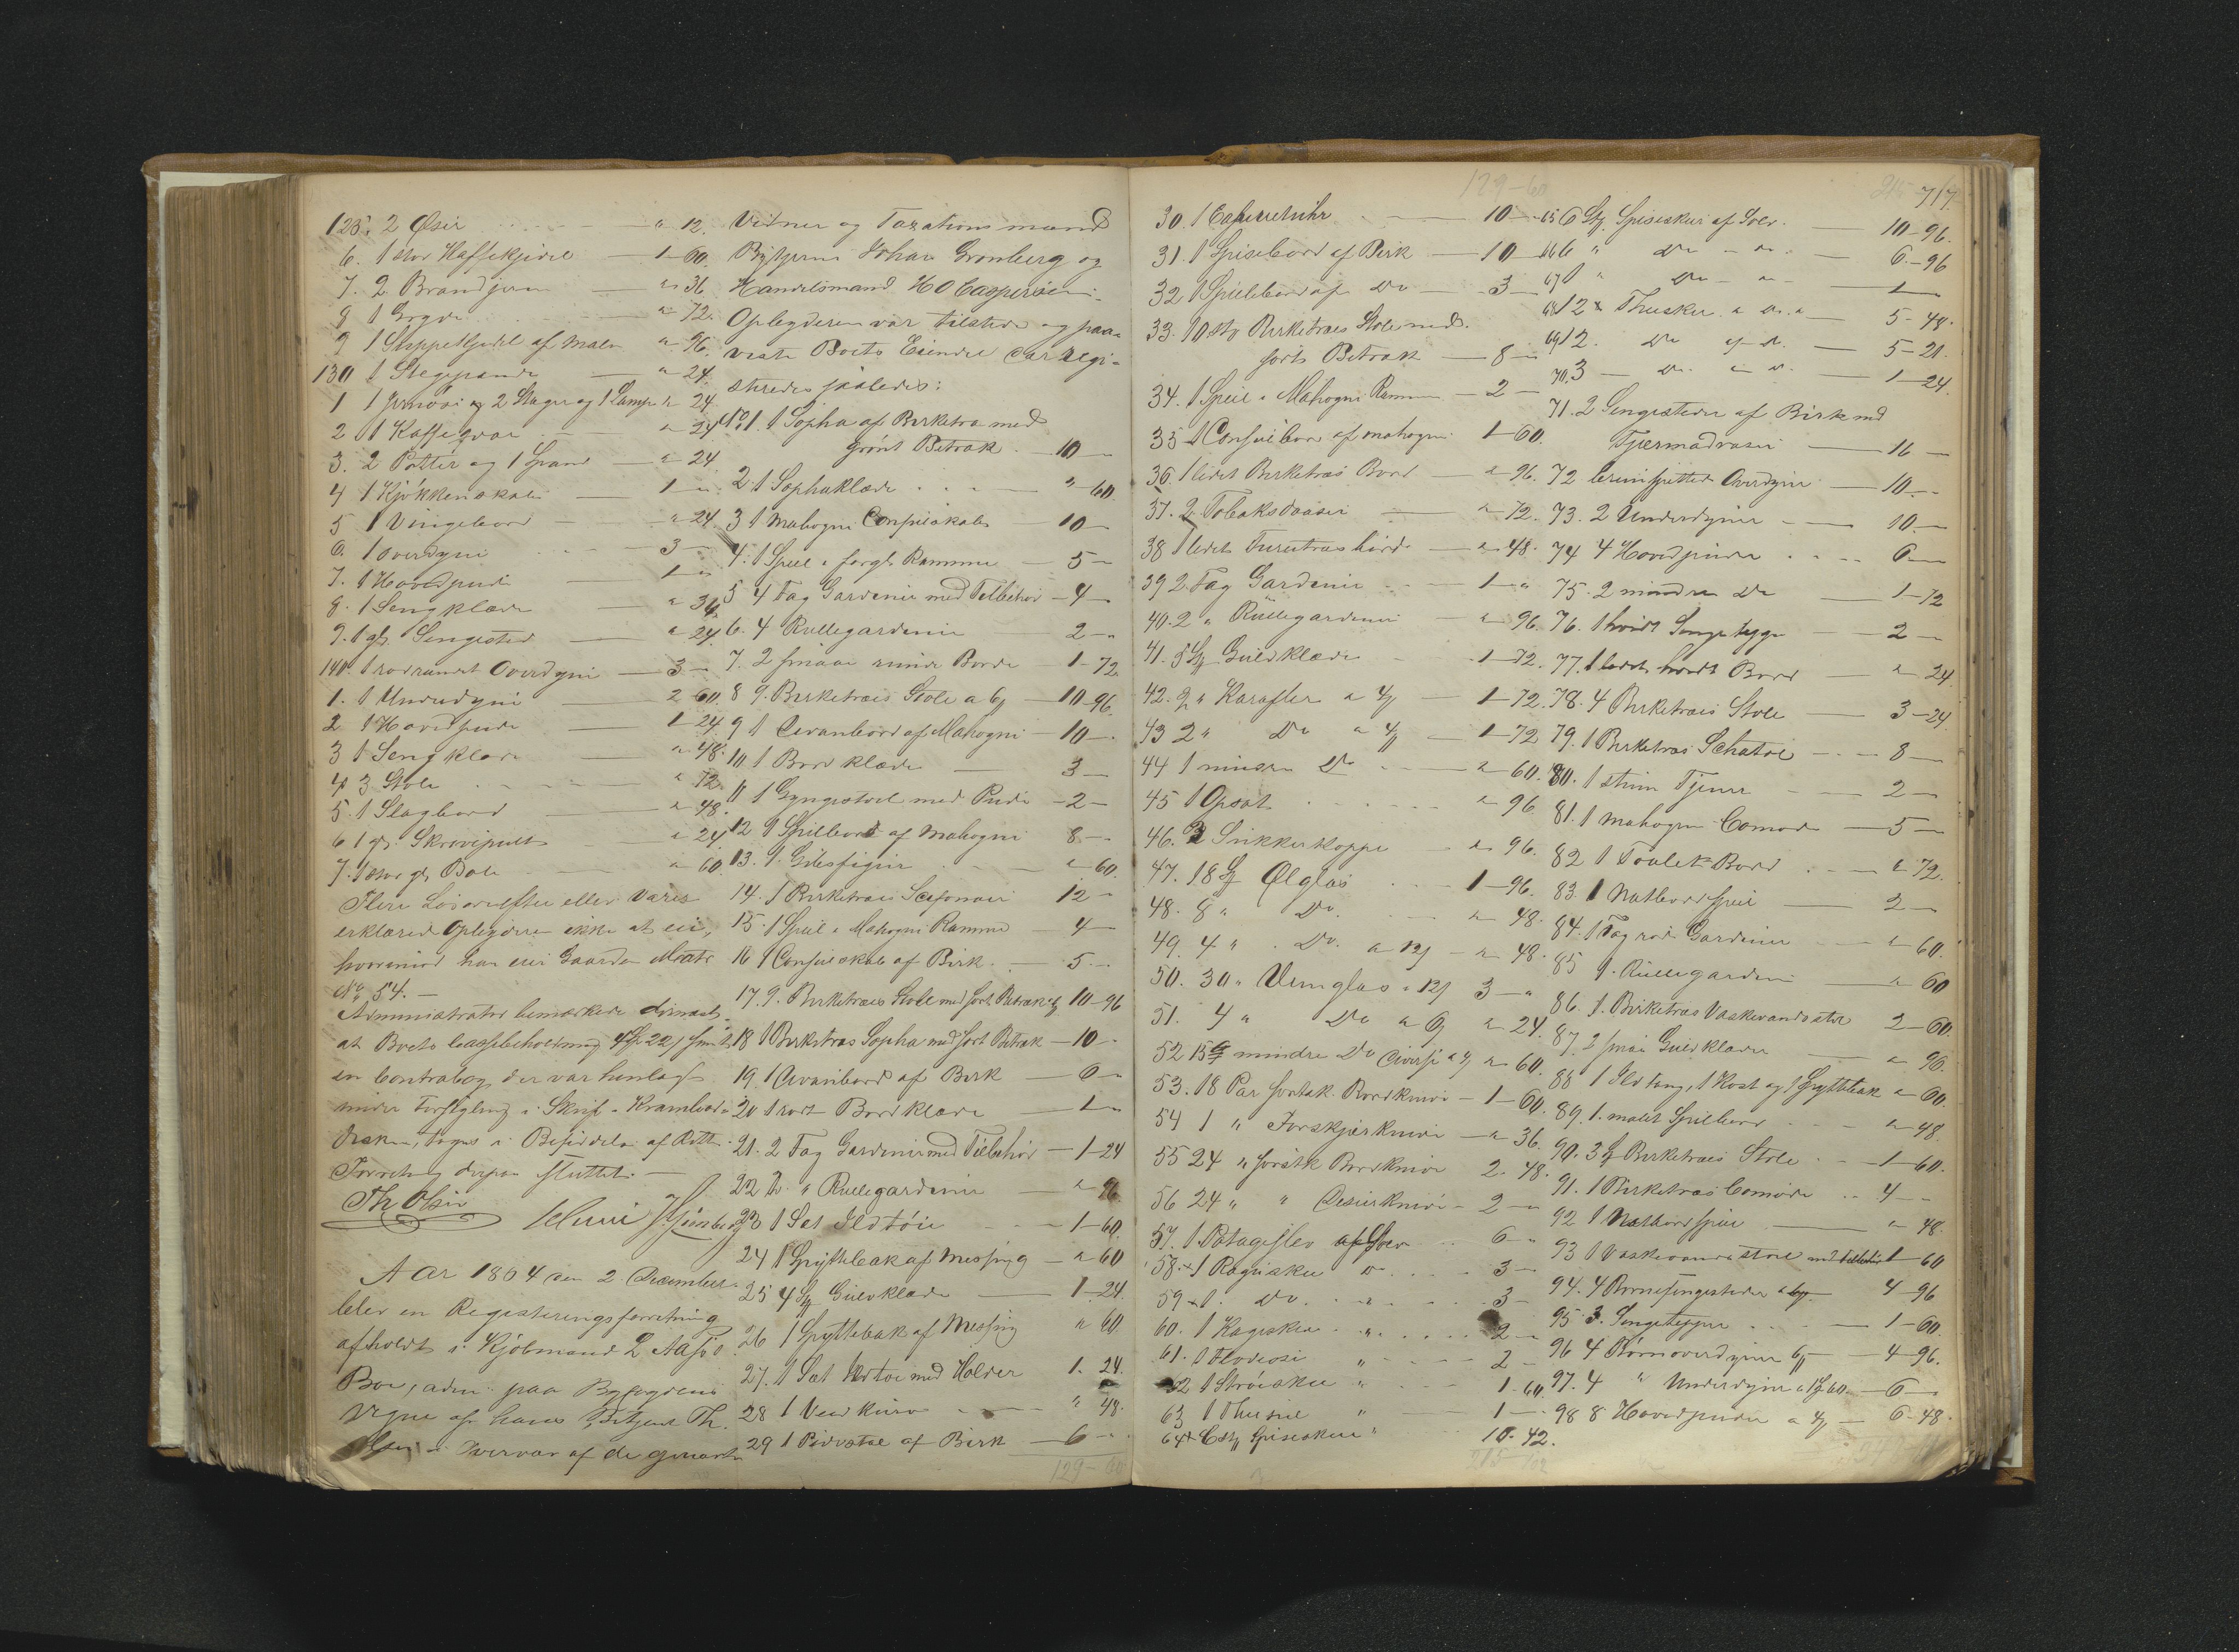 125. 2 Øser " 12.
6. 1 stor Kaffekjedel 1-60.
7. 2 Brandjern " 36
8 1 Gryde " 72.
9 1 Suppekjedel af Malm " 96.
130 1 Stegepande " 24.
1 2 Stager og 1 Lampe " 24
2 1 Kaffe " 24
3. 2 Potter og 1 Spand " 24
4 1 Kjøkkenskab 1 - "
5 1 Vingebord " 24.
6. 1 Overdyne 3 -
7. 1 Hovedpude 1 - "
8. 1 Sengklæde " 36
9. 1 gl. Sengested " 24
140. 1 rodrandet Overdyne 3 -
1. 1 Underdyne 2 60.
2 1 Hovedpude 1-24.
3 1 Sengklæde " 48.
4 3 Stole " 72.
5. 1 Slagbord " 48.
6 1 gl. Skrivepult " 24
7. 1 stor gl. " 60.
Flere Løsøreeffter eller Varer
erklærede Opbyderen ikke at eie,
hvorimod han eier Gaarden Matr
No 54. -
Administrator bemærkede dernæst
at Boets Cassebeholdning 4 22
en Contrabog der var henlagt
under Forsegling i Skuf i Krambod-
disken, toges i Besiddelse af Retten.
Forretng derpaa sluttet. -
Th Olsen
Aar 1864 den 2 December
blev en Registeringsforretning
afholdt i Kjøbmand L Aasøe
Boe, adm: paa Byfogdens
Vegne af hans Th.
Olsen i Overvær af de ernævnte
Vidner og Taxationsmænd
Johan Gronberg og
Handelsmand H O Caspersen.
Opbyderen var tilstede og paa-
viste Boets Eiendele der regi-
streredes saaledes:
No 1. 1 Sopha af Birketræ med
grønt Betræk. 10 -
2 1 Sophaklæde " 60
3 1 Mahogni Consolskab 10 -
4. 1 Speil i forgl. Ramme 5 -
5 4 Fag Gardiner med Tilbehør - 4 -
6. 4 Rullegardiner 2 - "
7. 2 smaae runde Borde 1 - 72.
8 9. Birketræes Stole a 6 - 10-96.
9 1 Divanbord af Mahogni - 10 -
10 1 Bordklæde 3 -
11 1 Gyngestol med Pude - 2 -
12 1 Spillebord af Mahogni 8 -
13. 1. Gibsfigur " 60.
14. 1 Birketræes 12 -
15. 1 Speil i Mahogni Ramme 4 -
16 1 Consolskab af Birk. 5 -
17. 9. Birketræes Stole med sort Betræk 10-96
18 1 Birketræs Sopha med sort Betræk - 10 -
19. 1 Divanbord af Birk 6 -
20 1 rødt Bordklæde 1 -
21. 2 Fag Gardiner med Tilbehør - 1-24
22 2. " Rullegardiner " 96.
23 1 Sæt Ildtøie 1-60.
24 1 Spyttebak af Messing - " 60
25 4 St Gulvklæde 1-24.
26 1 Spyttebak af Messing " 60
27. 1 Sæt Ildtøi med Holder 1-24.
28 1 Vedkurv " 48.
29 1 af Birk 6 -
129-60
129-60
717
30. 1 10 -
31. 1 Spisebord af Birk 10 -
32 1 Spillebord af Do 3 -
33. 10 sty Birketræes Stole med
sort Betræk 8 -
34. 1 Speil i Mahogni Ramme - 2 -
35 1 Consolbord af mahogni 1-60.
36. 1 lidet Birketræs Bord " 96.
37. 2 Tobaksdaaser " 72.
38 1 lidet Furutræsbord " 48.
39 2 Fag Gardiner 1 - "
40. 2 " Rullegardiner " 96.
41. 5 St Gulvklæde 1-72.
42. 2 " Karafler a 1-72.
43 2 " Do a 1-72
44 1 mindre Do " 60.
45 1 Opsats " 96
46. 3 Sukkerkoppe " 96.
47. 18 St Ølglas 1-96.
48. 8 " Do. " 48.
49. 4 " Do. a 12 " 48.
50. 30 " Vinglas a 12 3 - "
51. 4 " Do a 6 " 24.
52 15 mindre Do diverse " 60.
53. 18 Par Bordknive 1-60.
54 1 " Forskjærknive " 36.
55 24 " Bordknive 2. 48.
56 24 " " Desertknive - 2 -
57. 1 Potageslev af Sølv 6 "
58. 1 Raguskee " 3 -
59 1. Do. 3 -
60. 1 Kageskee 2 -
61. 1 " 2 -
62 1 Strøiskee " 1-60.
63 1 " 1 -
64 6 st Spiseskeer " 10. 42.
65 6 St. Spiseskeer af Sølv. 10-96.
66 6 " Do 6-96
67 1 " Do 1 -
68 12 Theskeer 5-48.
69 12. Do 5-21.
70. 3 Do. 1-24.
71. 2 Sengesteder af Birk med
Fjærmadrasser 16 -
72 Overdyner 10 -
73. 2 Underdyner 10 -
74 4 Hovedpuder 6 -
75. 2 mindre Do 1-72
76. 1 hvidt Sengetæppe 2 -
77. 1 lidet hvidt Bord " 24.
78. 4 Birketræes Stole 3-24.
79. 1 Birketræs Schatol 8 -
80. 1 stum Tjener 2 -
81. 1 Mahogni Comode 5 -
82 1 Toilet Bord " 72.
83. 1 Natbordspeil 2 -
84. 1 Fag røde Gardiner " 60.
85 1. Rullegardin " 60
86. 1. Birketræs Vaskevandsstol 2-60.
87. 2 smaa Gulvklæder " 96.
88 1 Ildtang, 1 Kost og 1 Spyttebak " 60.
89. 1. malet Spillebord " 48.
90. 3 St Birketræes Stole 1-60.
91. 1 Birketræs Comode 4 -
92 1 Natbordspeil " 48.
93 1 Vaskevandsstol med tilbehør 1-60
94. 4 Børnesengesteder 4-96
95. 3. Sengetæpper 1-60.
96 4 Børneoverdyner 4-96.
97. 4 " Underdyner 6 -
98 8 Hovedpuder a 6-48.